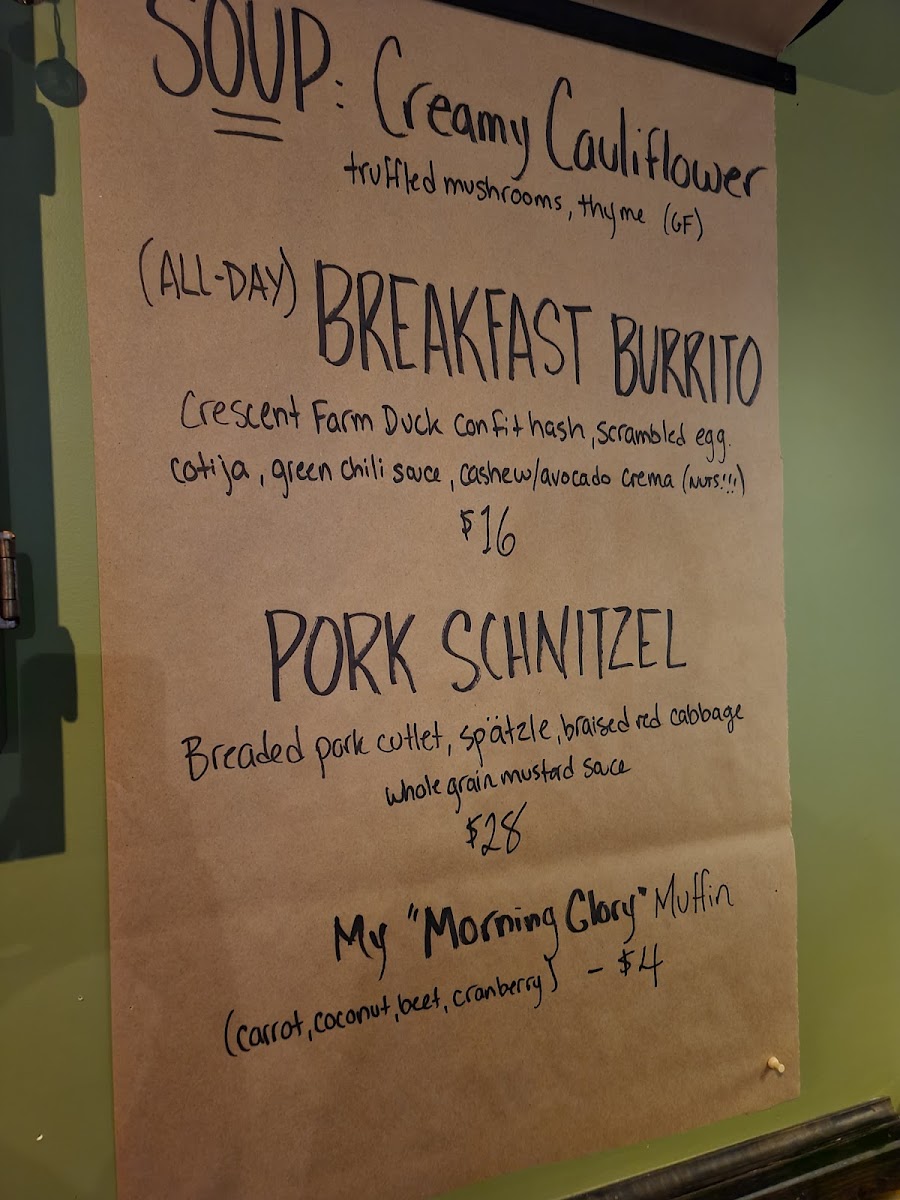 SOUP: Creamy Cauliflower
truffled mushrooms, thyme (GF)
(ALL-DAY) BREAKFAST BURRITO
Crescent Farm Duck confit hash, scrambled egg.
cotija, green chili sauce, cashew/avocado crema (NUTS!!!)
$16
PORK SCHNITZEL
Breaded pork cutlet, spätzle, braised red cabbage
whole grain mustard sauce
$28
My "Morning Glory" Muffin
(carrot, coconut, beet, cranberry) - $4